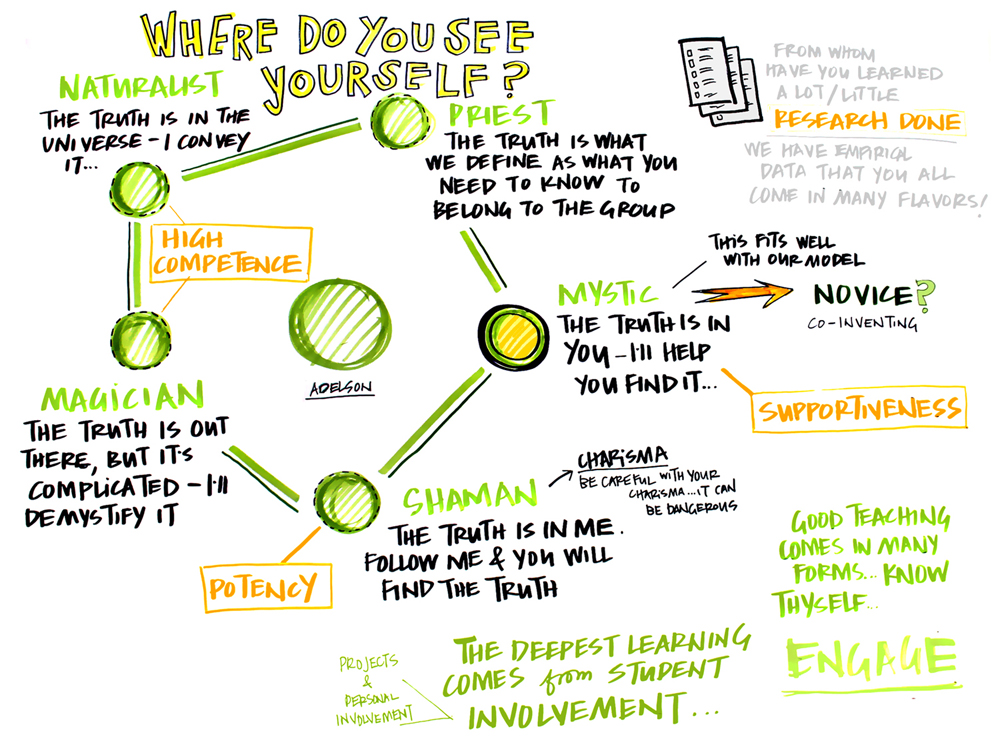 WHERE DO YOU SEE
YOURSELF?
NATURALIST
THE TRUTH IS IN THE
UNIVERSE - I CONVEY
IT...
PRIEST
THE TRUTH IS WHAT
WE DEFINE AS WHAT YOU
NEED TO KNOW TO
BELONG TO THE GROUP
FROM WHOM
HAVE YOU LEARNED
A LOT/LITTLE
RESEARCH DONE
WE HAVE EMPIRICAL
DATA THAT YOU ALL
COME IN MANY FLAVORS!
HIGH
COMPETENCE
THIS FITS WELL
WITH OUR MODEL
MYSTIC
THE TRUTH IS IN
YOU - I'll HELP
YOU FIND IT...
NOVICE?
CO-INVENTING
ADELSON
SUPPORTIVENESS
MAGICIAN
THE TRUTH IS OUT
THERE, BUT IT'S
COMPLICATED - I'll
DEMYSTIFY IT
SHAMAN
THE TRUTH IS IN ME.
FOLLOW ME & YOU WILL
FIND THE TRUTH
CHARISMA
BE CAREFUL WITH YOUR
CHARISMA...IT CAN
BE DANGEROUS
POTENCY
GOOD TEACHING
COMES IN MANY
FORMS... KNOW
THYSELF...
ENGAGE
PROJECTS
&
PERSONAL
INVOLVEMENT
THE DEEPEST LEARNING
COMES from STUDENT
INVOLVEMENT...